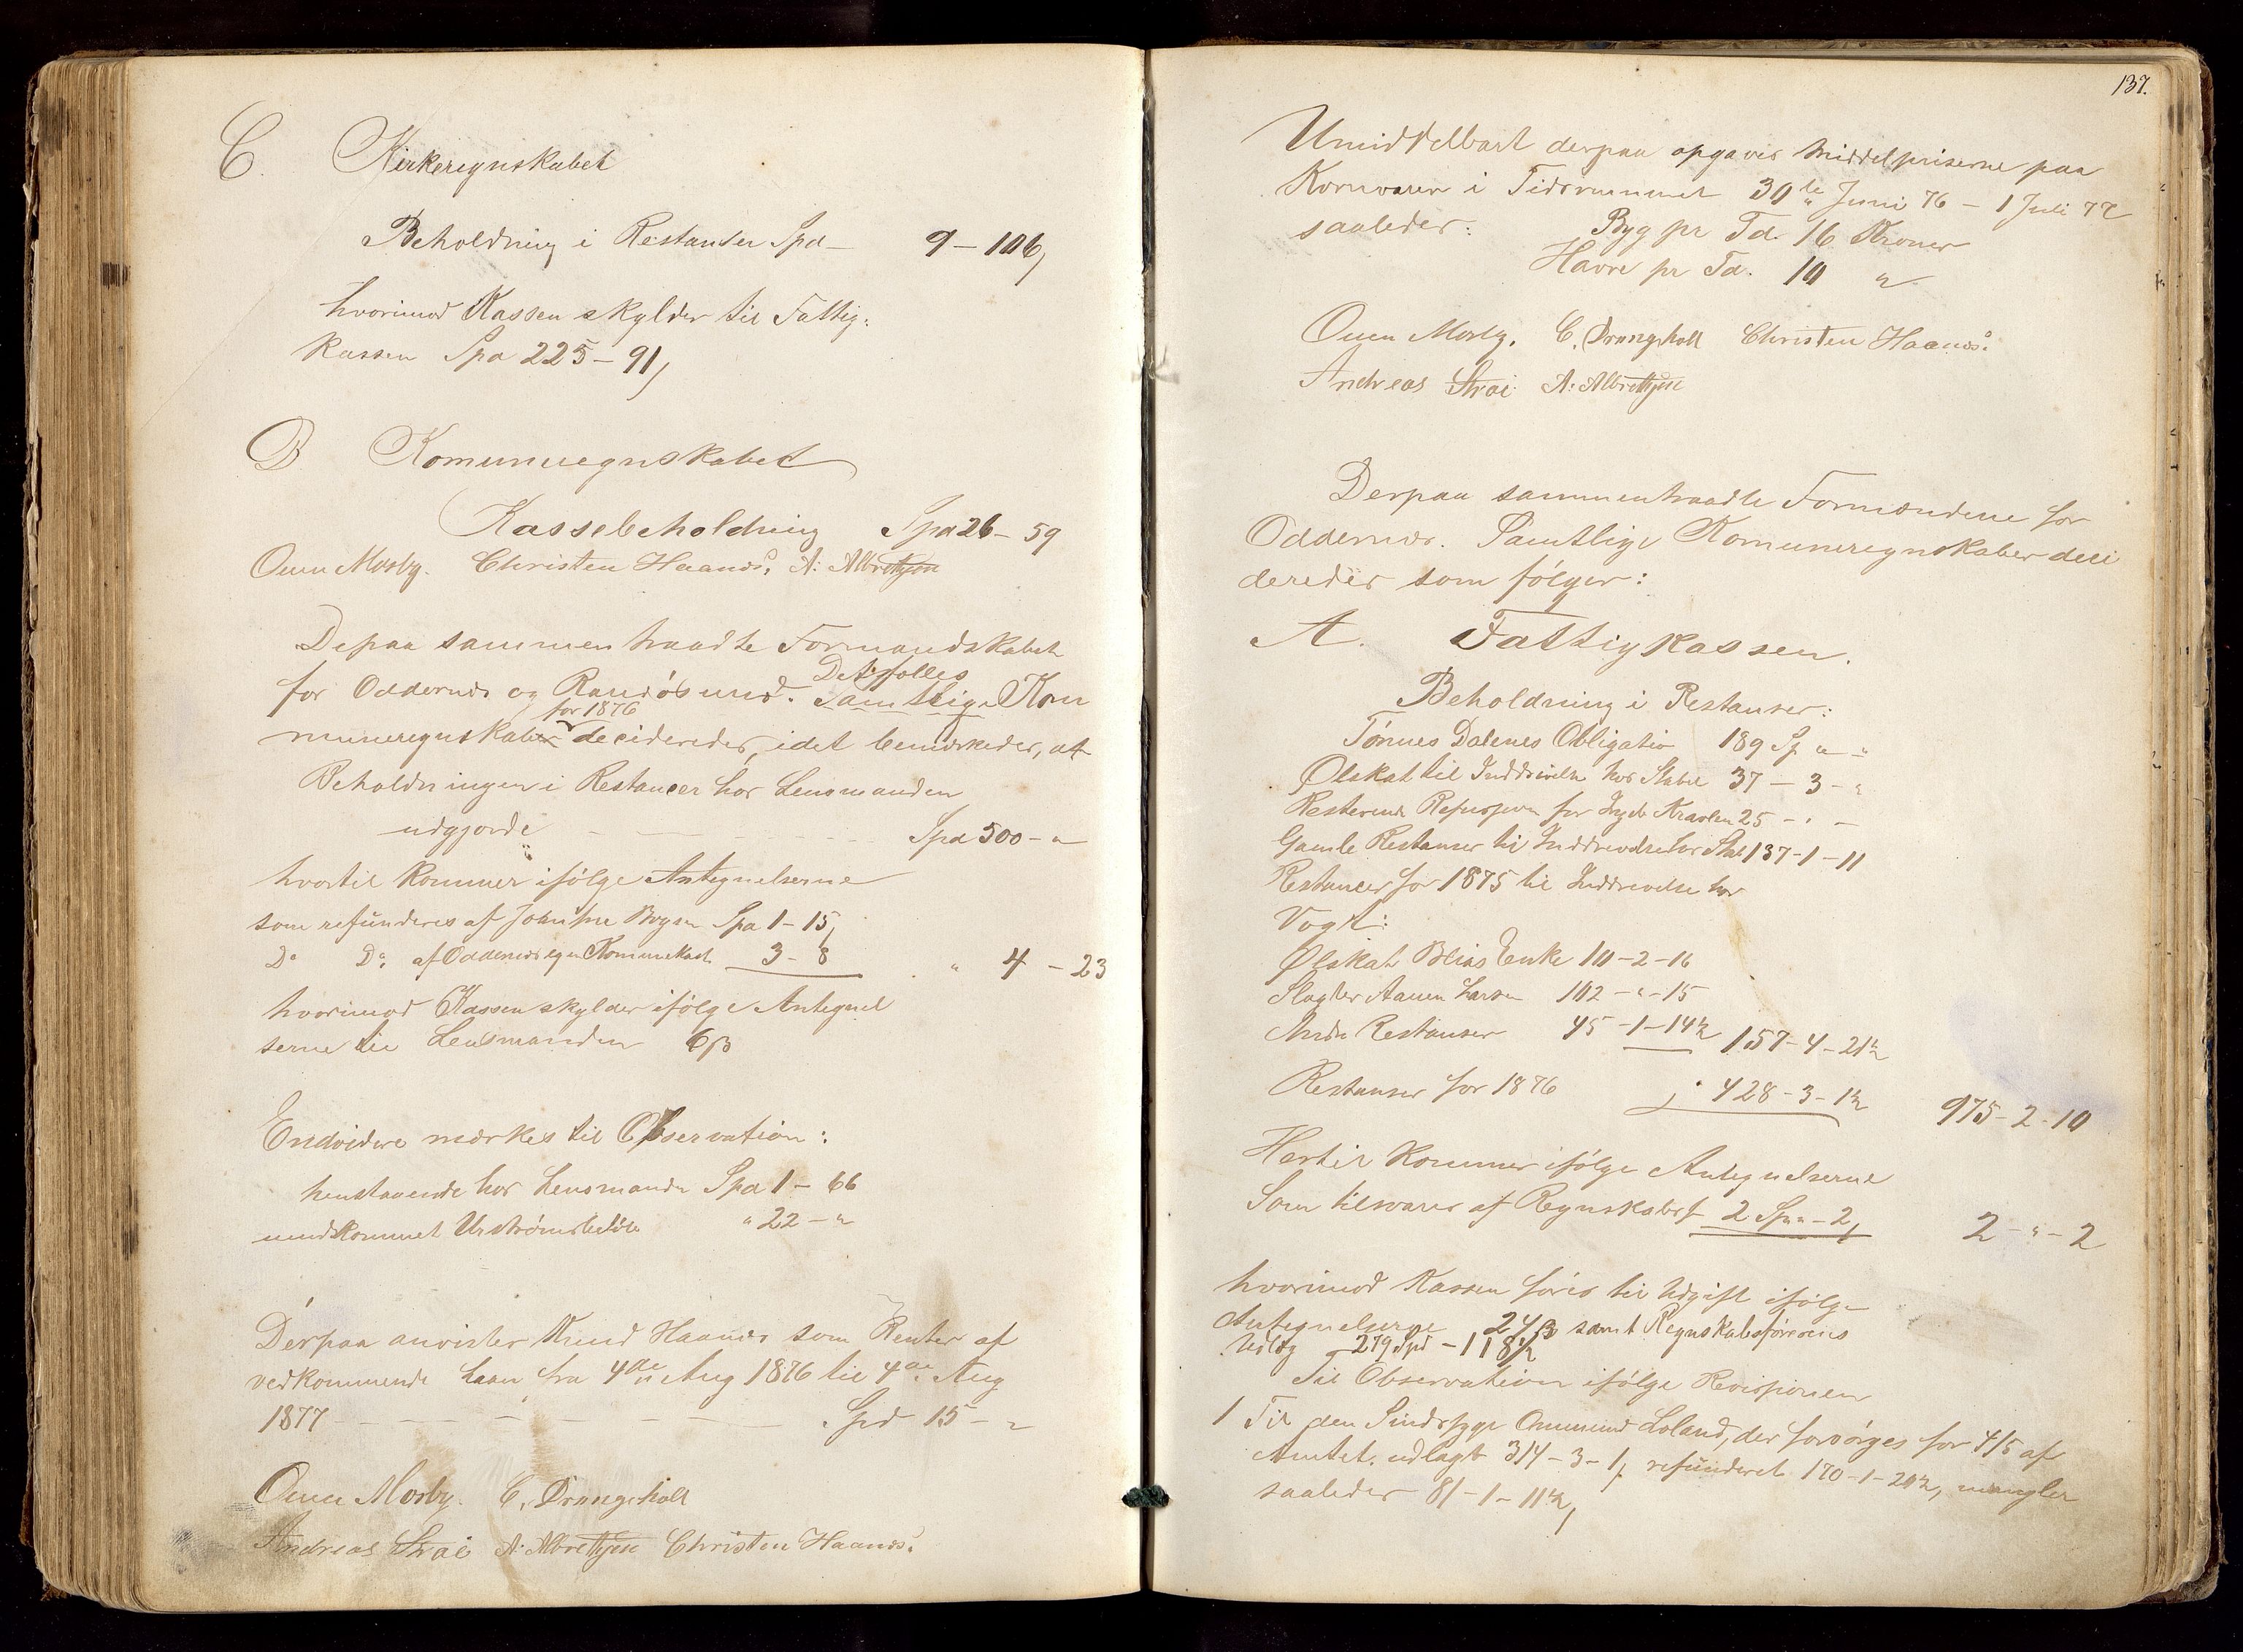 C. Kirkeregnskabet
Beholdning i Restantser Spd – 9 – 106,
hvorimod Kassen skylder til Fattig-
kassen Spd 225 – 91,
B Komuneregnskabet
Kassebeholdning Spd 26 – 59
Ouen Mosby. Christen Haanæs. A: Albrettsen
Depaa sammentraadte Formandskabet
for Oddernæs og Randøsund. Det fælles Samtlige Kom
muneregnskaber for 1876 decideredes, idet bemærkedes, at
Beholdningen i Restancer hos Lensmanden
udgjorde – – – – Spd 500 – "
hvortil kommer ifølge Antegnelserne
som refunderes af Bogen Spd 1 – 15,
Do Do. af Oddernæs egen Kommunekasse 3 – 8 " 4 – 23
hvorimod Kassen skylder ifølge Antegnel
serne til Lensmanden 6 ß
Endvidere mærkes til Observation:
henstaaende hos Lensmanden Spd 1 – 66
" 22 – "
Derpaa anvistes Knud Haanæs som Renter af
vedkommende Laan fra 4de Aug 1876 til 4de Aug
1877 – – – – – – Spd 15 – "
Ouen Mosby. C. Drangsholt
Andreas Strai A: Albrettsen Christen Haanæs.
137.
Umiddelbart derpaa opgaves Middelpriserne paa
Kornvarer i Tidsrummet 30te Juni 76 – 1 Juli 77
saaledes: Byg pr Td. 16 Kroner
Havre pr Td. 10 "
Ouen Mosby. C. Drangsholt Christen Haanæs.
Andreas Strai A: Albrettsen
Derpaa sammentraadte Formændene for
Oddernæs. Samtlige Komuneregnskaber deci
deredes som følger:
A. Fattigkassen.
Beholdning i Restanser:
Tønnes Dalenes Obligatio 189 Sp " – "
Ølskat til Inddrivelse hos Stabel 37 – 3 – "
Resterende Refusjon for 25 – " –
Gamle Restanser til Inddrivelse hos Stab 137 – 1 – 11
Restancer for 1875 til Inddrivelse hos
Vogt:
Ølskat Enke 10 – 2 – 16
Slagter Aanen Larsen 102 – " – 15
Andre Restanser 45 – 1 – 14½ 157 – 4 – 21½
Restanser for 1876 428 – 3 – 1½ 975 – 2 – 10
Hertil kommer ifølge Antegnelserne
Som tilsvares af Regnskabsf 2 Sp " – 2, 2 – " – 2
hvorimod Kassen føres til Udgift ifølge
Antegnelserne 24 ß samt Regnskabsførerens
Udlæg 279 Spd – 118½
Til Observation ifølge Revisjonen
1 Til den Sindssyge Ommund Loland, der forsørges for 4/5 af
Amtet, udlagt 314 – 3 – 1, refunderet 170 – 1 – 20½, mangler
saaledes 81 – 1 – 11½,